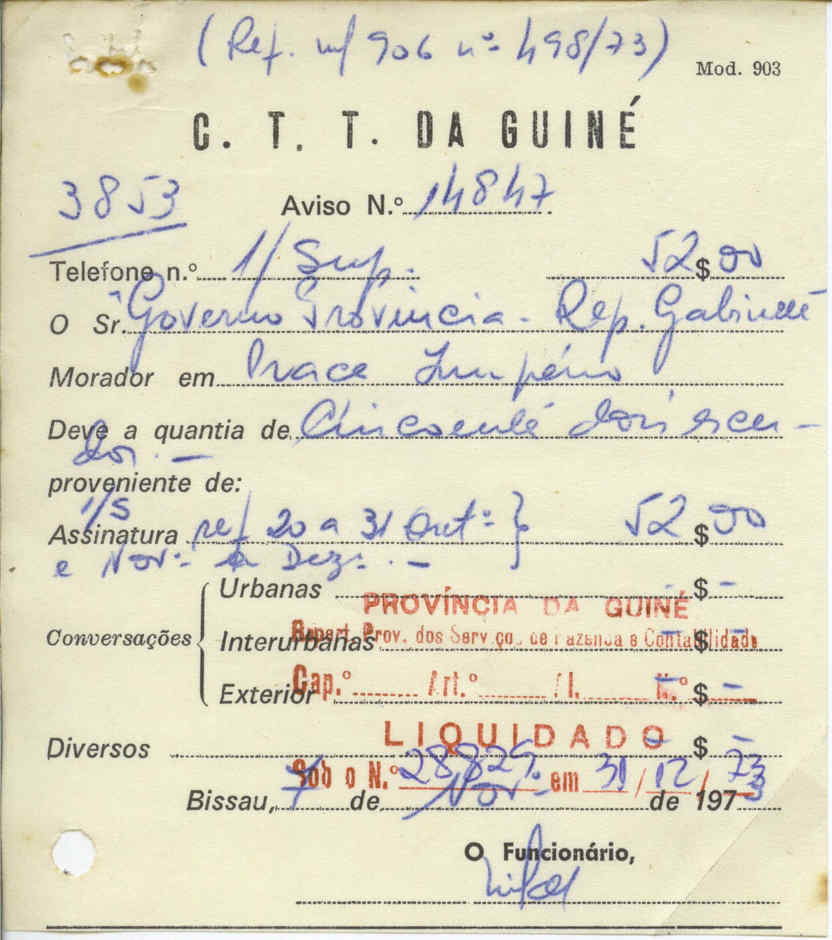 (Ref. m/ 906 nº 498/73)
Mod. 903
C. T. T. DA GUINÉ
3853
Aviso N.º 14847
Telefone n.º 1/Sup. 52$00
O Sr. Governo Província - Rep. Gabinete
Morador em Prace Império
Deve a quantia de Cincoenta dois escu-
dos. —
proveniente de:
1/S
Assinatura ref 20 a 31 Outº } 52$00
e Novº a Dezº. —
Urbanas - $ -
PROVÍNCIA DA GUINÉ
Conversações { Interurbanas - $ -
Repart. Prov. dos Serviços de Fazenda e Contabilidade
Exterior - $ -
Cap.º Art.º N.º
LIQUIDADO
Diversos - $ -
Sob o N.º 28829 em 31/12/73
Bissau, 7 de Novº de 1973
O Funcionário,